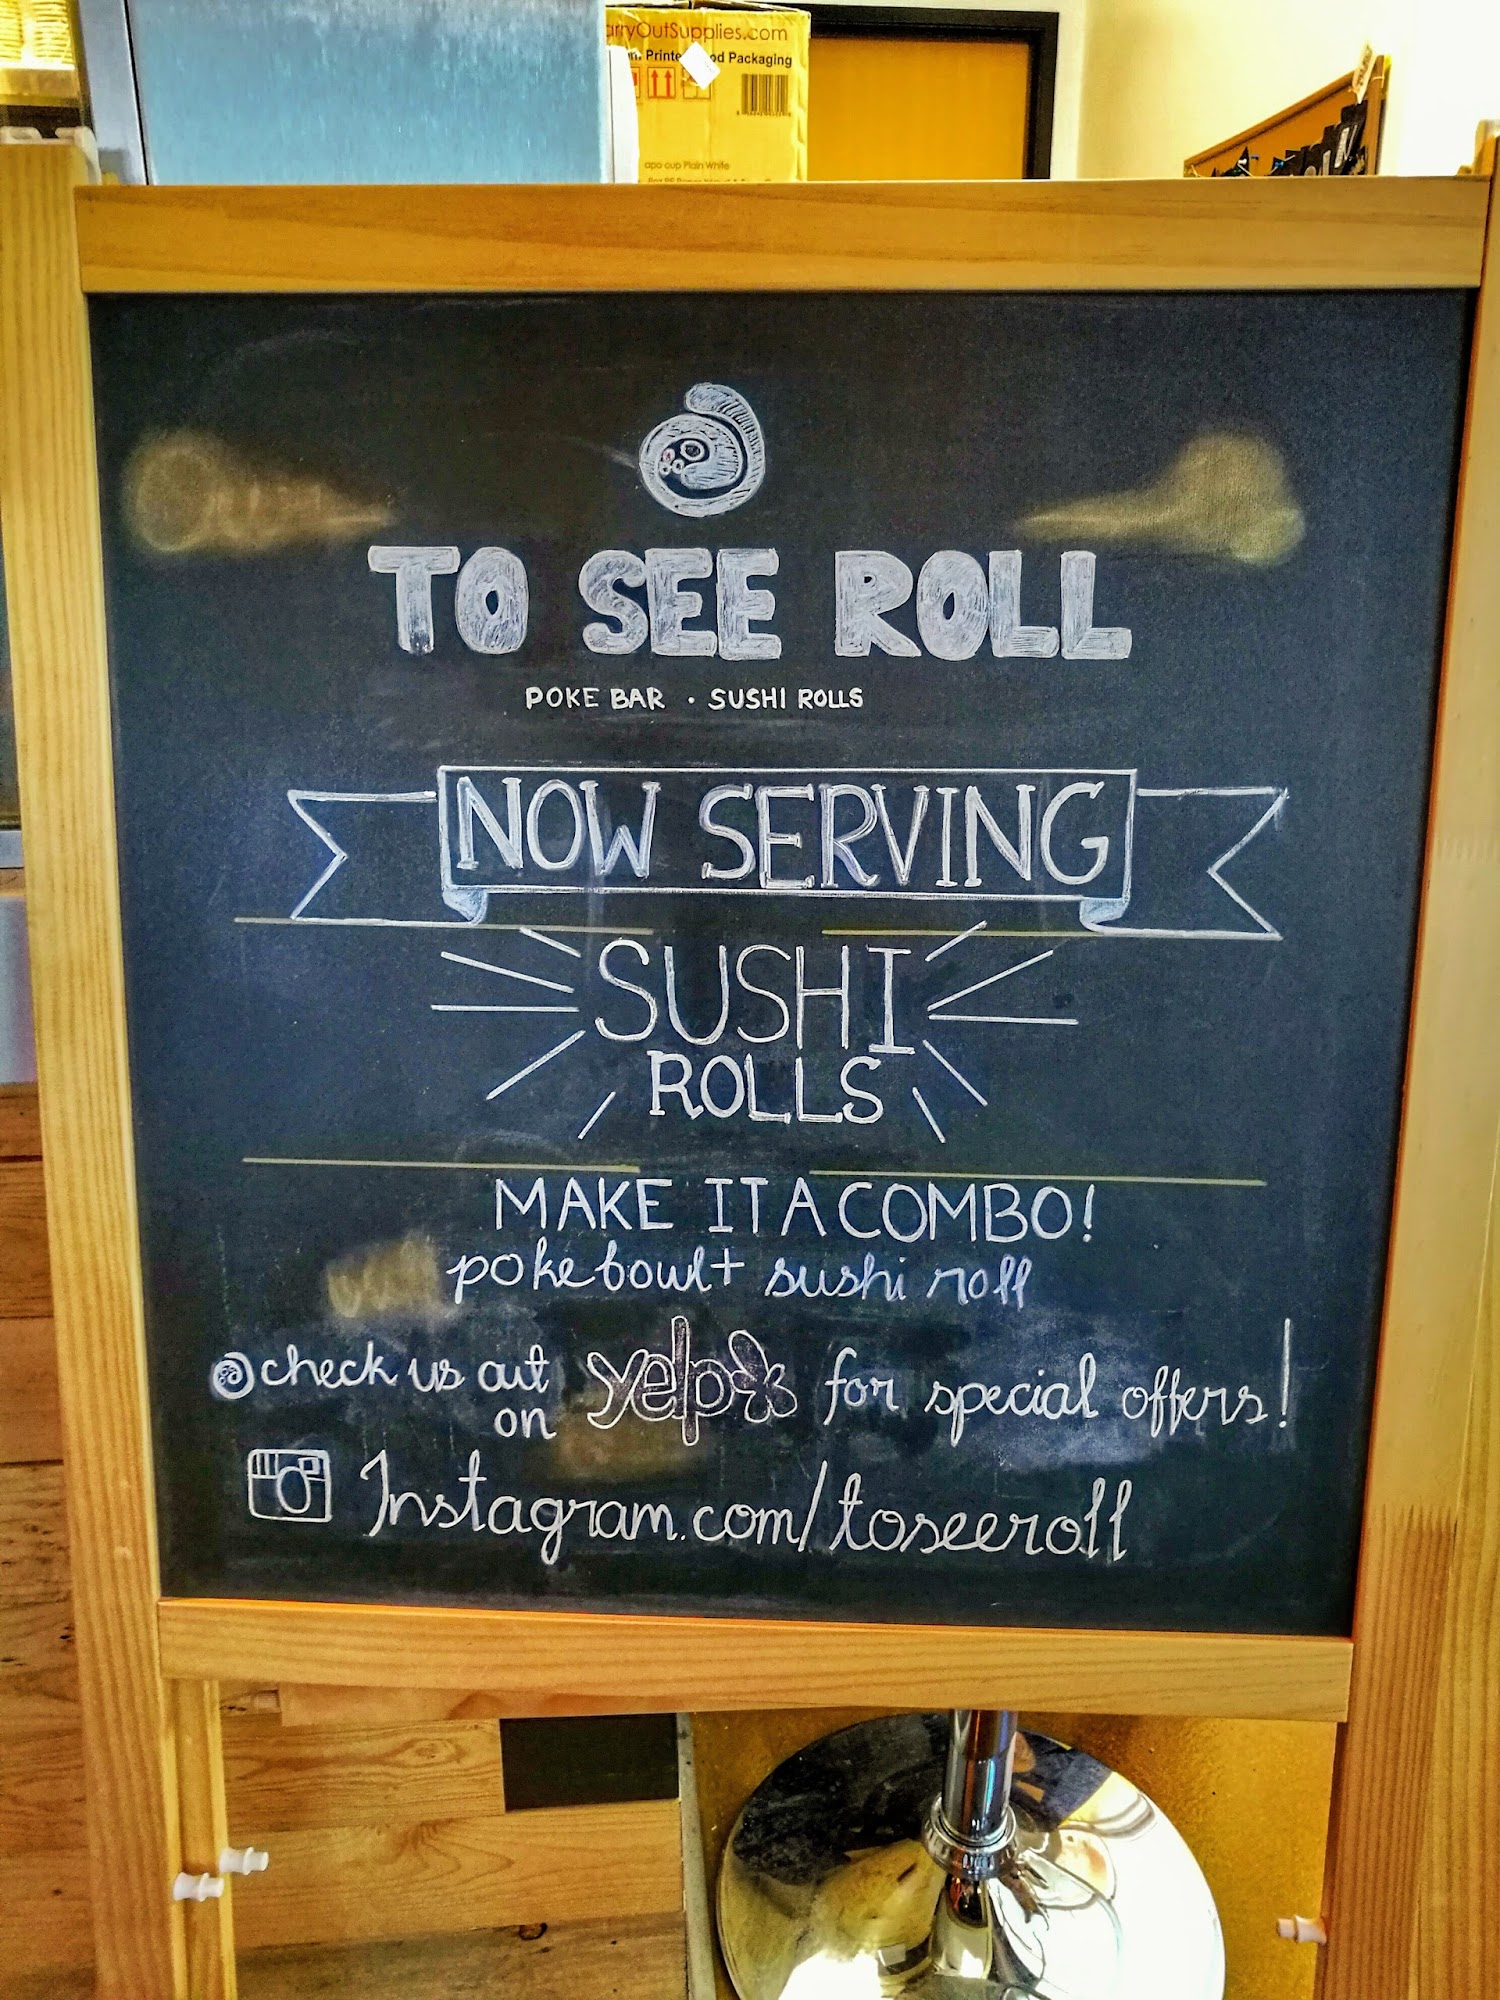 arryOutSupplies.com
Printe od Packaging
apo cup Plain White
TO SEE ROLL
POKE BAR · SUSHI ROLLS
NOW SERVING
SUSHI
ROLLS
MAKE IT A COMBO!
poke bowl + sushi roll
check us out on yelp for special offers!
Instagram.com/toseeroll